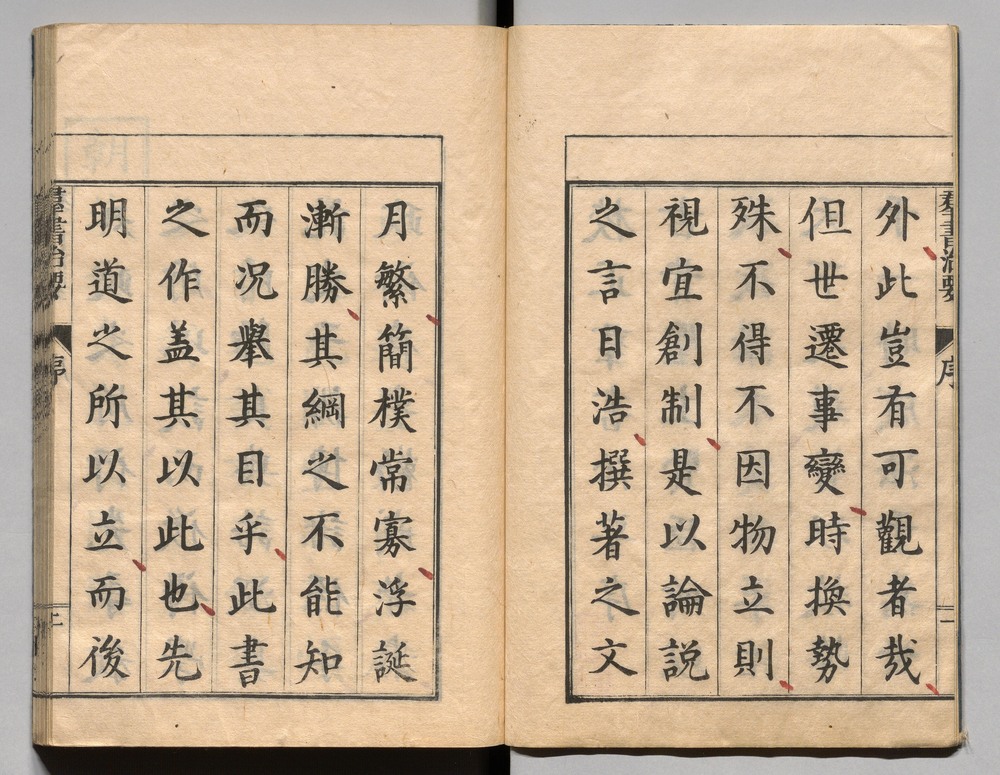 外此豈有可觀者哉
但世遷事變時換勢
殊不得不因物立則
視宜創制是以論説
之言日浩撰著之文
月繁簡樸常寡浮誕
漸勝其綱之不能知
而况舉其目乎此書
之作盖其以此也先
明道之所以立而後
羣書治要
序
一
羣書治要
序